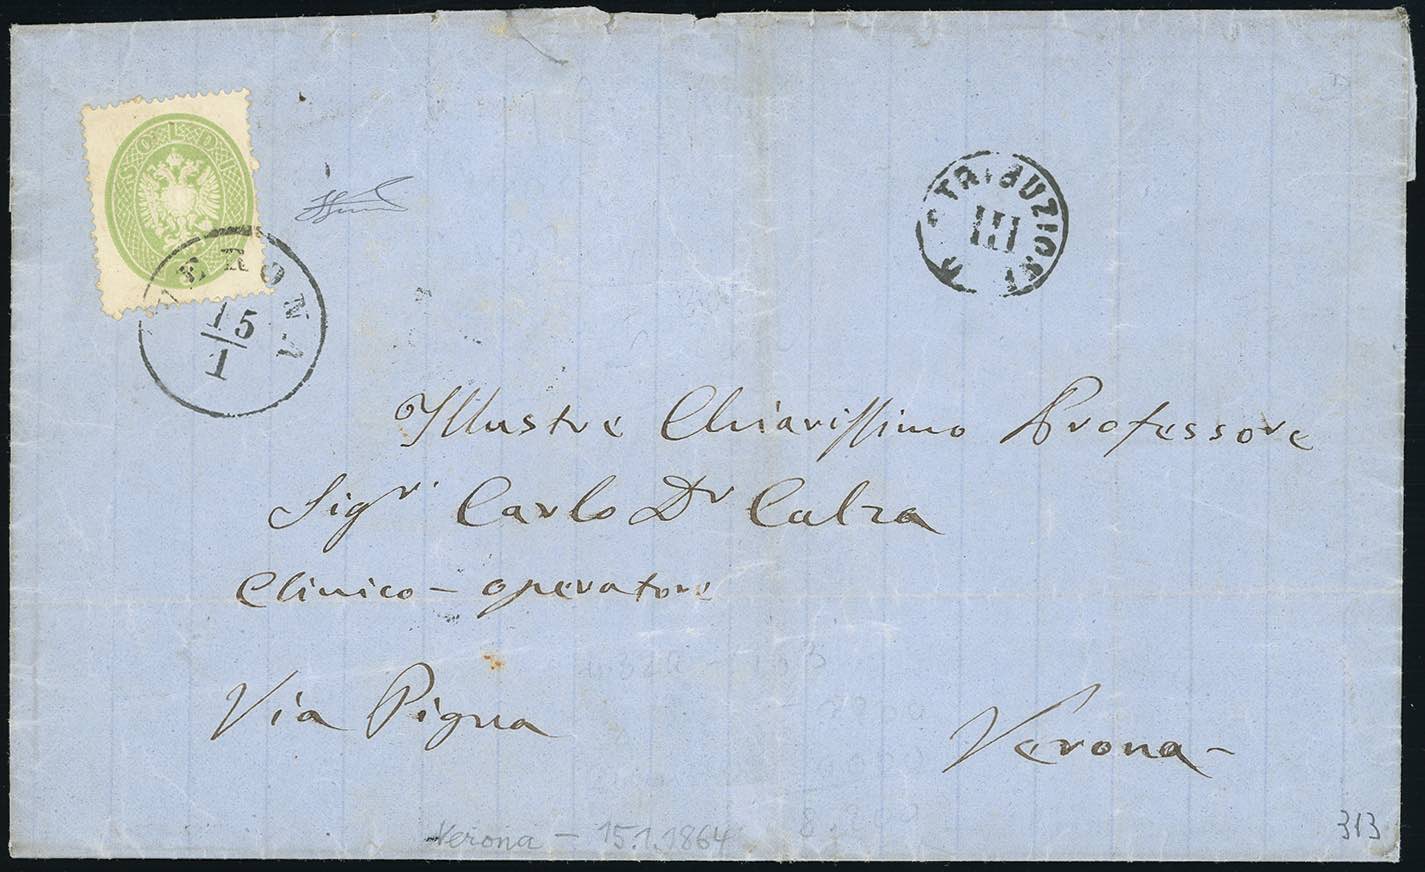 SOLDI
VERONA
15
1
DISTRIBUZIONI
III
Illustre Chiarissimo Professore
Sigr Carlo Dr Calza
Clinico – operatore
Via Pigna
Verona –
Verona – 15.1.1864
313